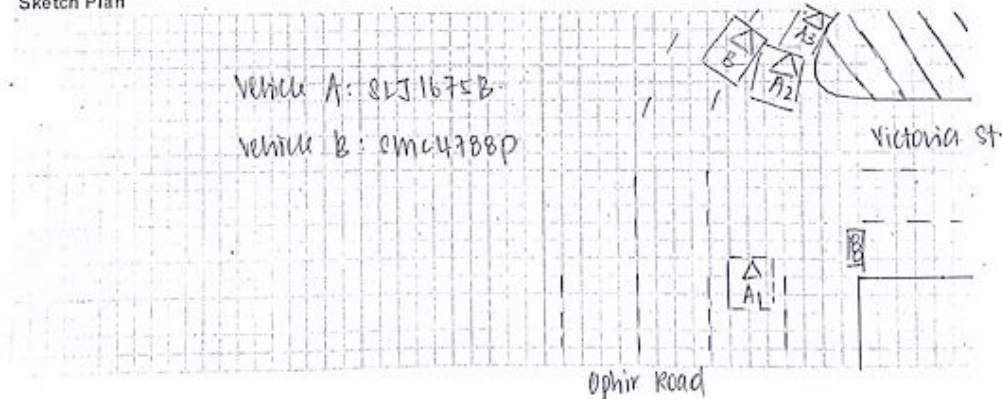 Sketch Plan
Vehicle A: SLJ1675B
Vehicle B: SMC4788P
B
A2
A3
Victoria St.
B
A1
Ophir Road